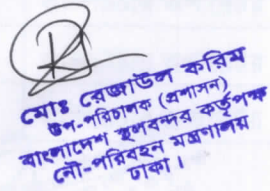 মোঃ রেজাউল করিম
উপ-পরিচালক (প্রশাসন)
বাংলাদেশ স্থলবন্দর কর্তৃপক্ষ
নৌ-পরিবহন মন্ত্রণালয়
ঢাকা।